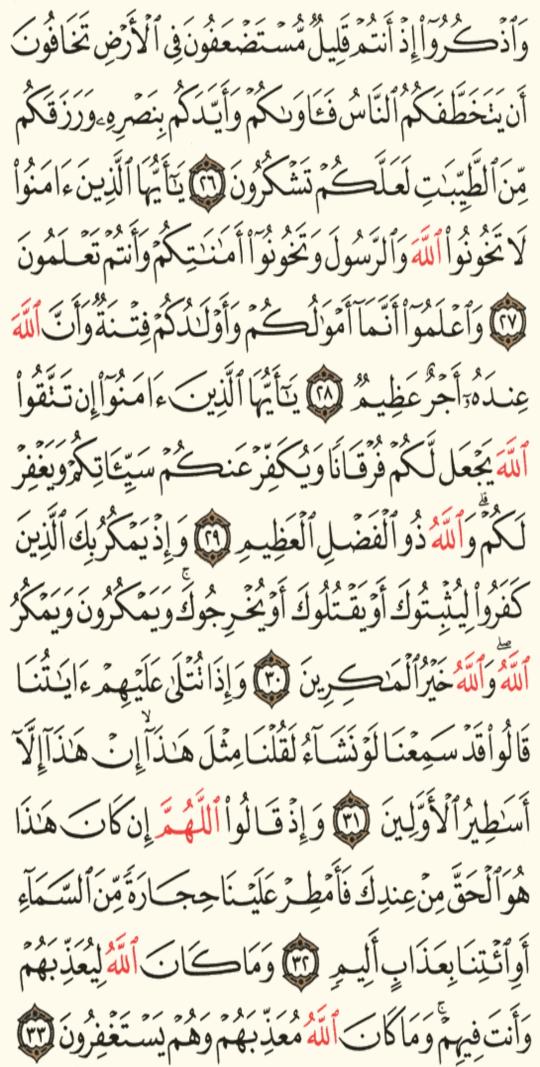 وَٱذْكُرُوٓا۟ إِذْ أَنتُمْ قَلِيلٌ مُّسْتَضْعَفُونَ فِى ٱلْأَرْضِ تَخَافُونَ
أَن يَتَخَطَّفَكُمُ ٱلنَّاسُ فَـَٔاوَىٰكُمْ وَأَيَّدَكُم بِنَصْرِهِۦ وَرَزَقَكُم
مِّنَ ٱلطَّيِّبَـٰتِ لَعَلَّكُمْ تَشْكُرُونَ ٢٦ يَـٰٓأَيُّهَا ٱلَّذِينَ ءَامَنُوا۟
لَا تَخُونُوا۟ ٱللَّهَ وَٱلرَّسُولَ وَتَخُونُوٓا۟ أَمَـٰنَـٰتِكُمْ وَأَنتُمْ تَعْلَمُونَ
٢٧ وَٱعْلَمُوٓا۟ أَنَّمَآ أَمْوَٰلُكُمْ وَأَوْلَـٰدُكُمْ فِتْنَةٌ وَأَنَّ ٱللَّهَ
عِندَهُۥٓ أَجْرٌ عَظِيمٌ ٢٨ يَـٰٓأَيُّهَا ٱلَّذِينَ ءَامَنُوٓا۟ إِن تَتَّقُوا۟
ٱللَّهَ يَجْعَل لَّكُمْ فُرْقَانًا وَيُكَفِّرْ عَنكُمْ سَيِّـَٔاتِكُمْ وَيَغْفِرْ
لَكُمْ ۗ وَٱللَّهُ ذُو ٱلْفَضْلِ ٱلْعَظِيمِ ٢٩ وَإِذْ يَمْكُرُ بِكَ ٱلَّذِينَ
كَفَرُوا۟ لِيُثْبِتُوكَ أَوْ يَقْتُلُوكَ أَوْ يُخْرِجُوكَ ۚ وَيَمْكُرُونَ وَيَمْكُرُ
ٱللَّهُ ۖ وَٱللَّهُ خَيْرُ ٱلْمَـٰكِرِينَ ٣٠ وَإِذَا تُتْلَىٰ عَلَيْهِمْ ءَايَـٰتُنَا
قَالُوا۟ قَدْ سَمِعْنَا لَوْ نَشَآءُ لَقُلْنَا مِثْلَ هَـٰذَآ ۙ إِنْ هَـٰذَآ إِلَّآ
أَسَـٰطِيرُ ٱلْأَوَّلِينَ ٣١ وَإِذْ قَالُوا۟ ٱللَّهُمَّ إِن كَانَ هَـٰذَا
هُوَ ٱلْحَقَّ مِنْ عِندِكَ فَأَمْطِرْ عَلَيْنَا حِجَارَةً مِّنَ ٱلسَّمَآءِ
أَوِ ٱئْتِنَا بِعَذَابٍ أَلِيمٍ ٣٢ وَمَا كَانَ ٱللَّهُ لِيُعَذِّبَهُمْ
وَأَنتَ فِيهِمْ ۚ وَمَا كَانَ ٱللَّهُ مُعَذِّبَهُمْ وَهُمْ يَسْتَغْفِرُونَ ٣٣